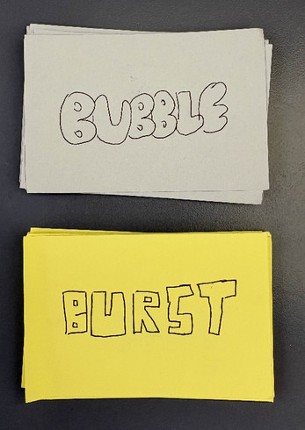 BUBBLE
BURST